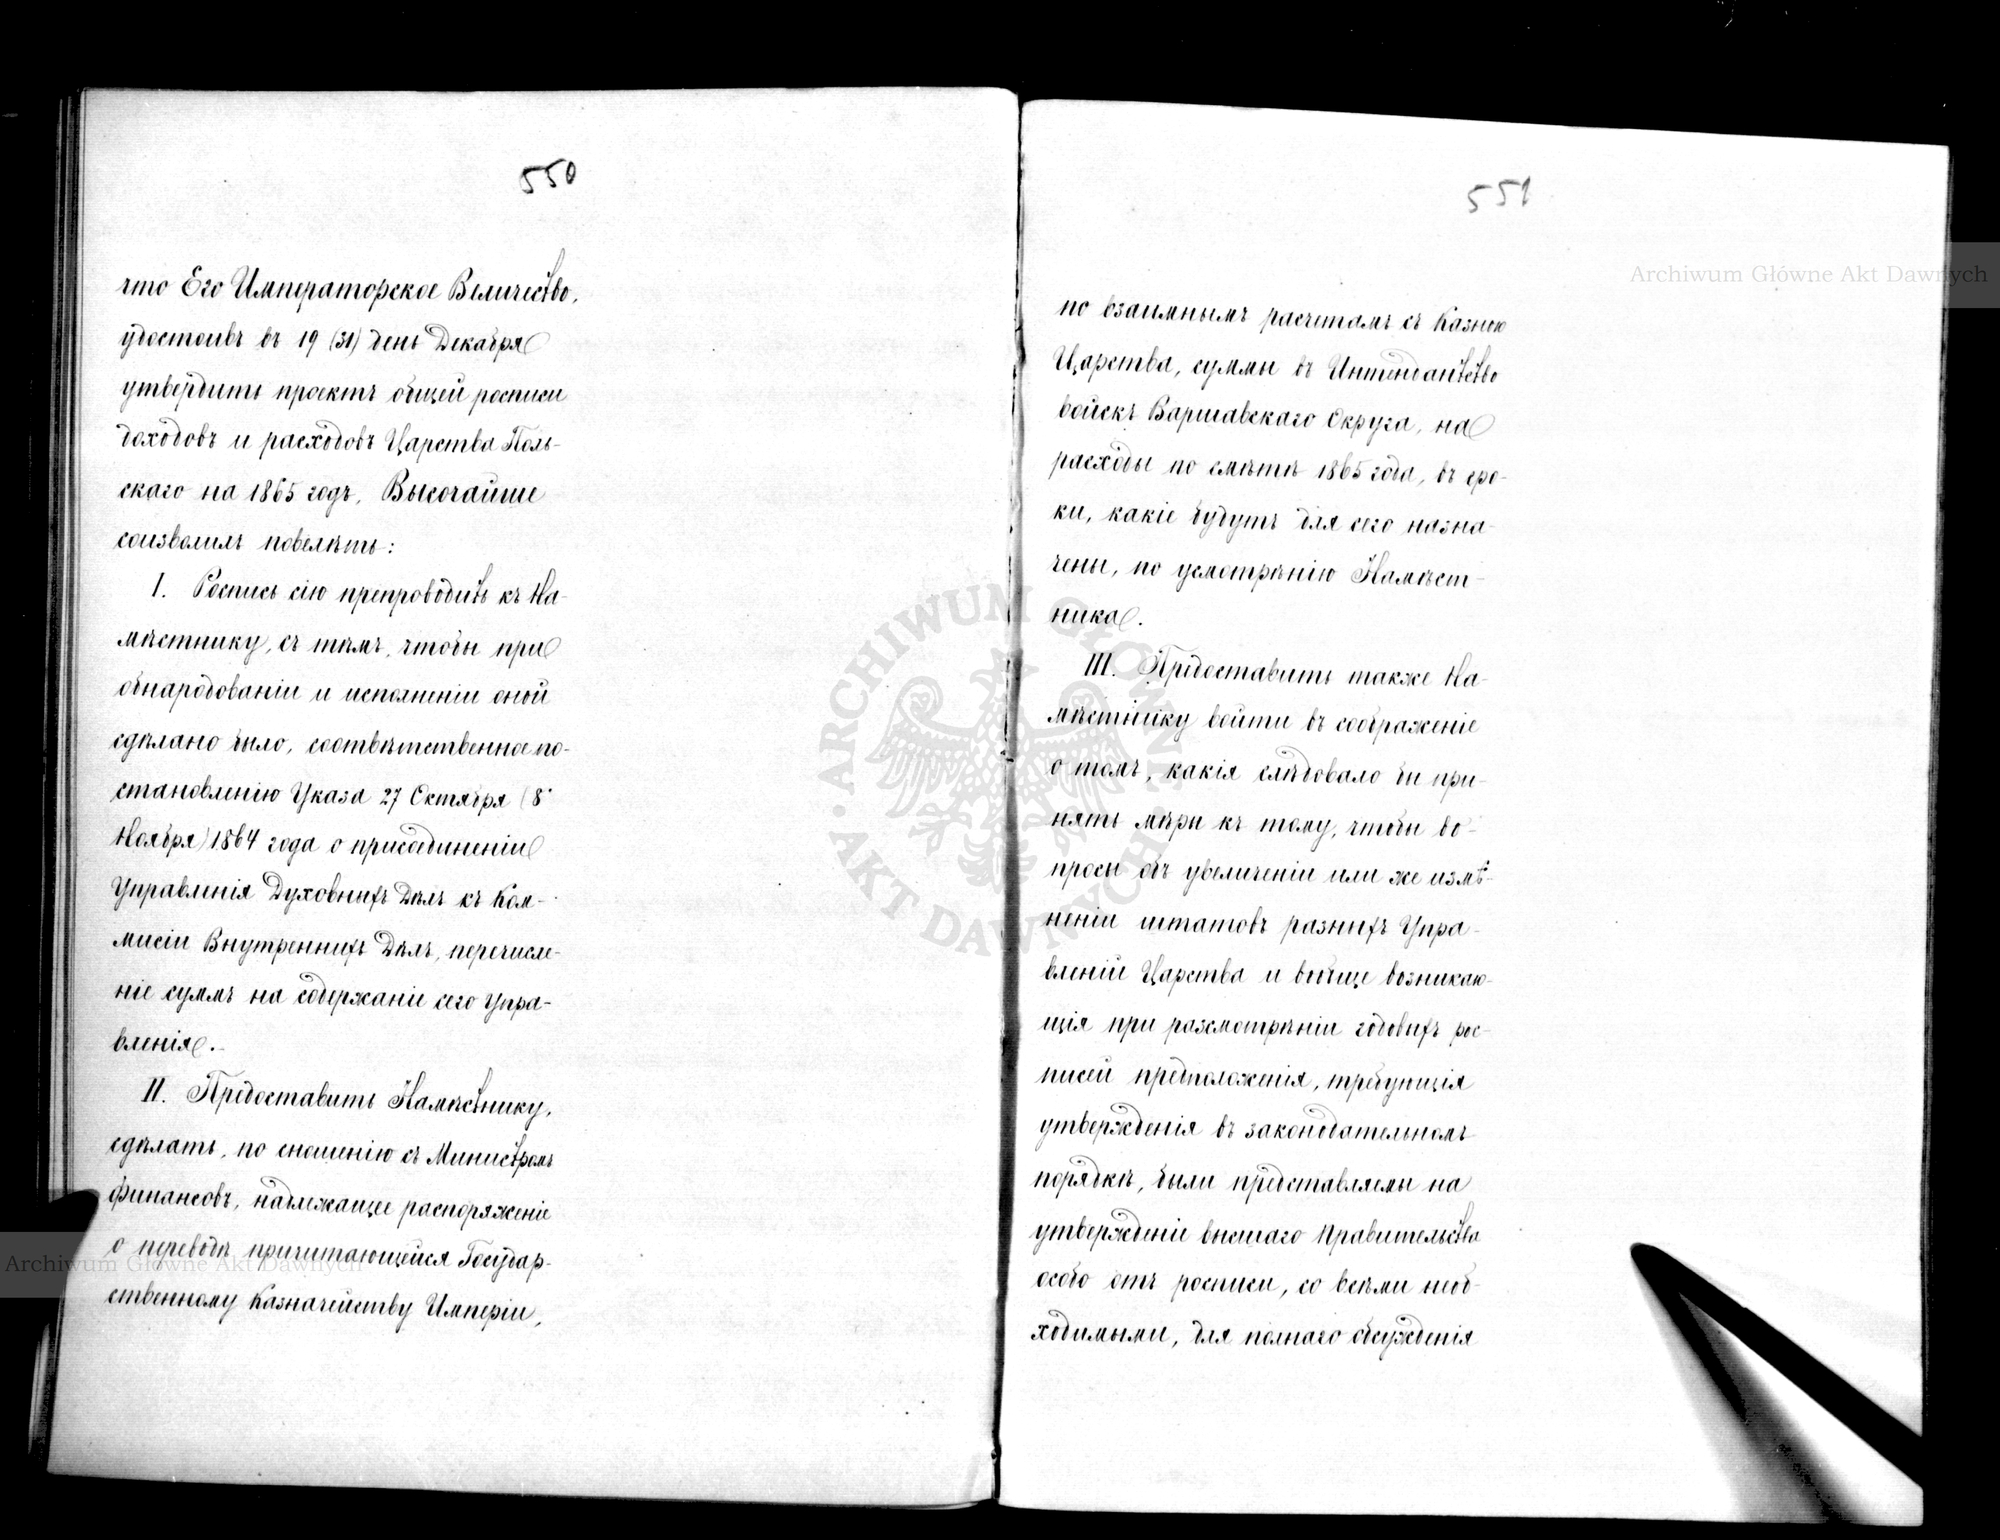 550
что Его Императорское Величество,
удостоивъ въ 19 (31) день Декабря
утвердить проектъ общей росписи
доходовъ и расходовъ Царства Поль-
скаго на 1865 годъ, Высочайше
соизволилъ повелѣть:
I. Роспись сію препроводить къ На-
мѣстнику, съ тѣмъ, чтобы при
обнародованіи и исполненіи оной
сдѣлано было, соотвѣтственно по-
становленію Указа 27 Октября (8
Ноября) 1864 года о присоединеніи
Управленія Духовныхъ Дѣлъ къ Ком-
мисіи Внутреннихъ Дѣлъ, перечисле-
ніе суммъ на содержаніе сего Упра-
вленія.
II. Предоставить Намѣстнику,
сдѣлать, по сношенію съ Министромъ
Финансовъ, надлежащее распоряженіе
о переводѣ причитающейся Государ-
ственному Казначейству Имперіи,
551
по взаимнымъ расчетамъ съ Казною
Царства, суммы въ Интендантство
войскъ Варшавскаго Округа, на
расходы по смѣтѣ 1865 года, въ сро-
ки, какіе будутъ для сего назна-
чены, по усмотрѣнію Намѣст-
ника.
III. Предоставить также На-
мѣстнику войти въ соображеніе
о томъ, какія слѣдовало бы при-
нять мѣры къ тому, чтобы во-
просы объ увеличеніи или же измѣ-
неніи штатовъ разныхъ Упра-
вленій Царства и вообще возникаю-
щія при разсмотрѣніи годовыхъ рос-
писей предположенія, требующія
утвержденія въ законодательномъ
порядкѣ, были представляемы на
утвержденіе высшаго Правительства
особо отъ росписи, со всѣми необ-
ходимыми, для полнаго обсужденія
Archiwum Główne Akt Dawnych
Archiwum Główne Akt Dawnych
ARCHIWUM GŁÓWNE · AKT DAWNYCH ·